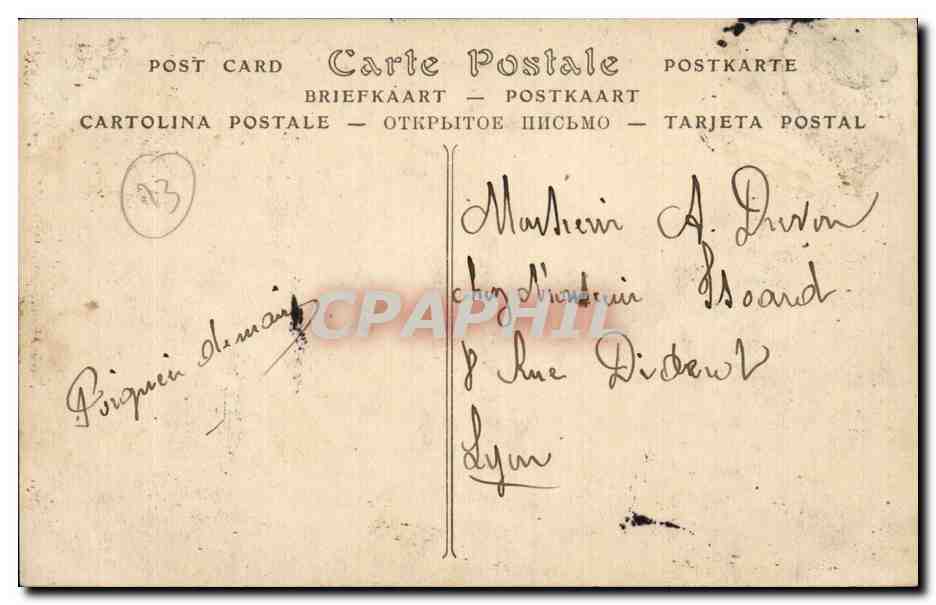 POST CARD Carte Postale POSTKARTE
BRIEFKAART — POSTKAART
CARTOLINA POSTALE — ОТКРЫТОЕ ПИСЬМО — TARJETA POSTAL
83
Monsieur A.
chez Monsieur Issoard
8 Rue Diderot
Lyon
Poignée de main
CPAPHIL